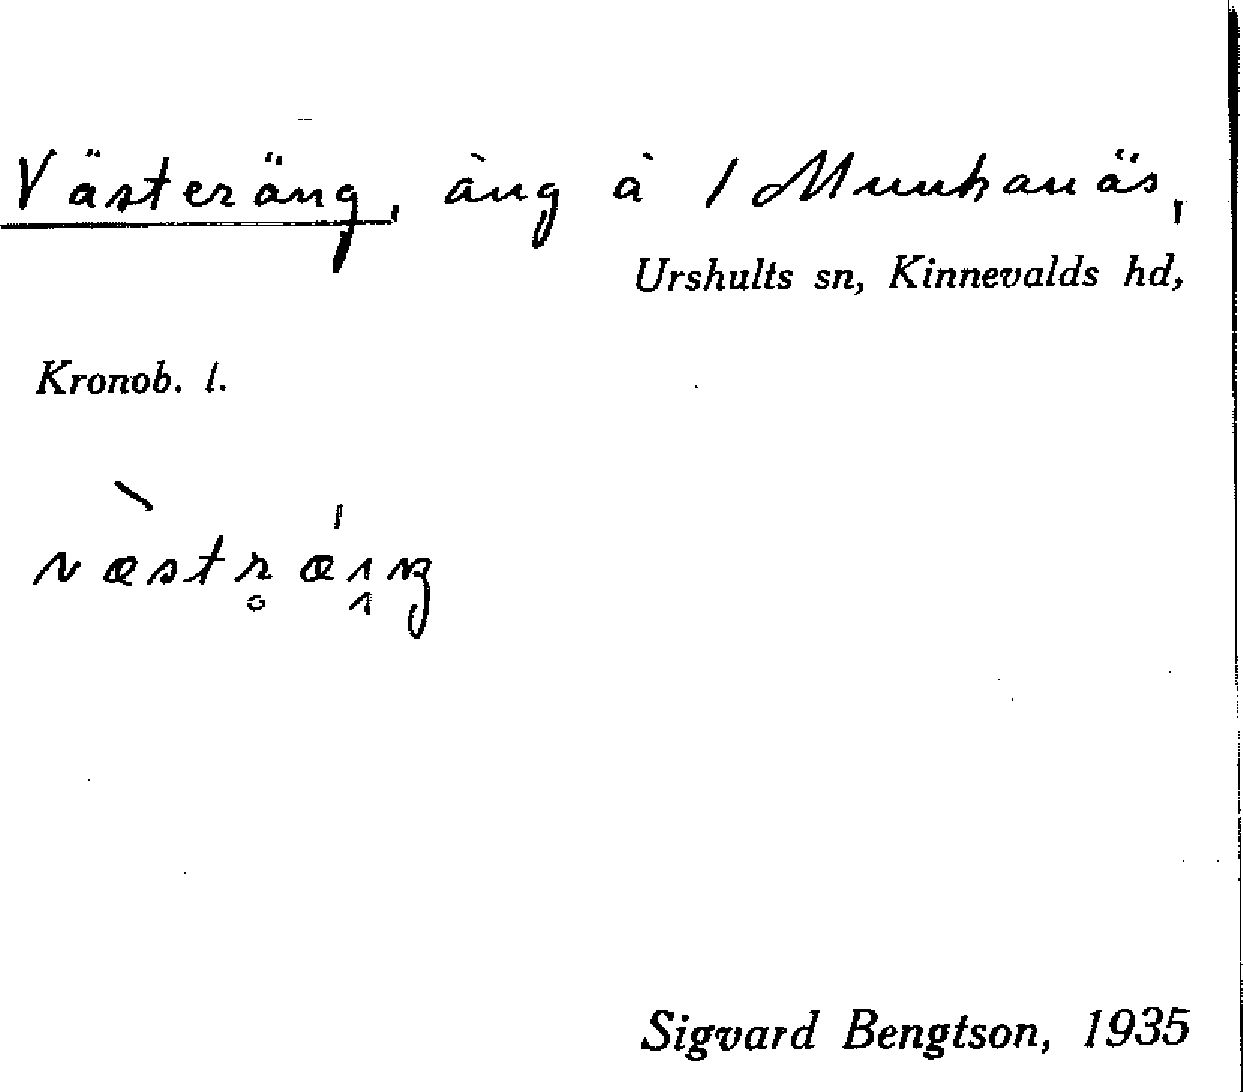 Västeräng, äng å 1 Munkanäs,
Urshults sn, Kinnevalds hd,
Kronob. l.
Sigvard Bengtson, 1935